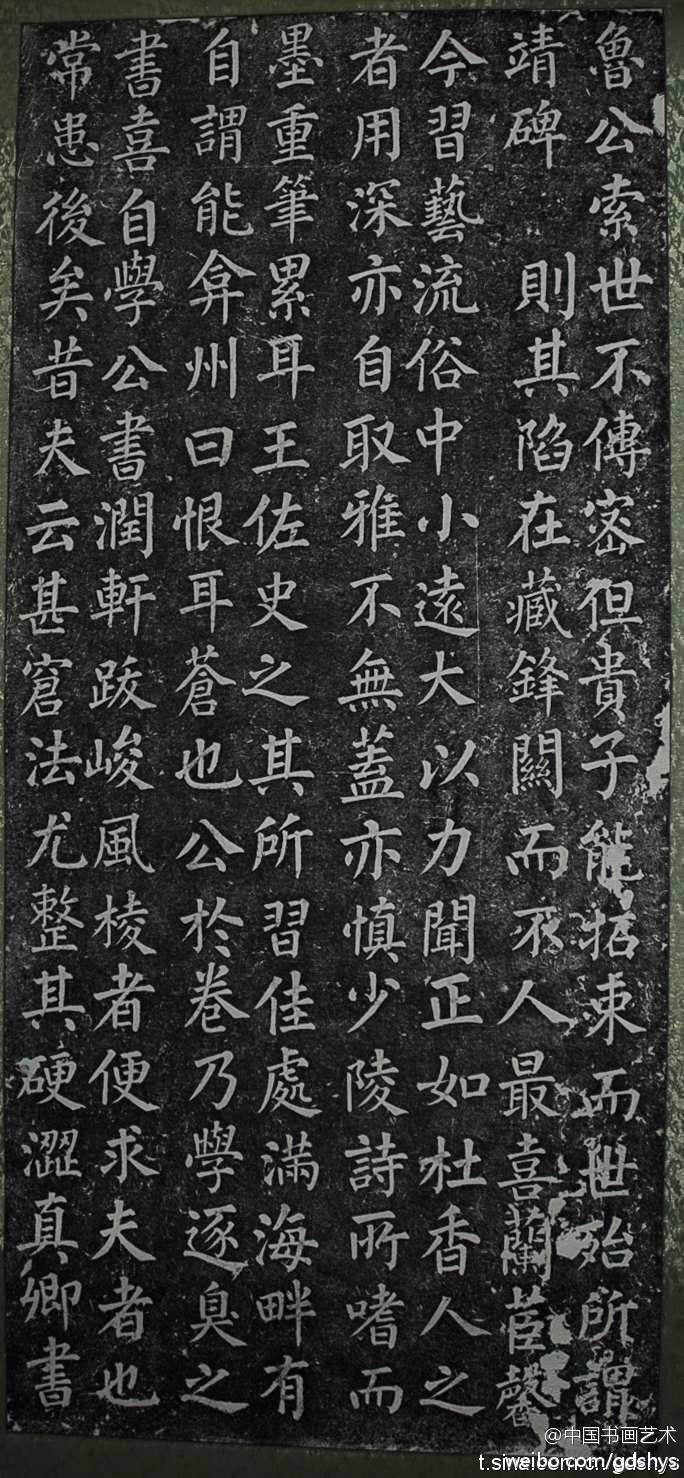 魯公索世不傳密但貴子能括束而世殆所謂
靖碑 則其陷在藏鋒關而不人最喜蘭茞馨
今習藝流俗中小遠大以力聞正如杜香人之
者用深亦自取雅不無蓋亦慎少陵詩所嗜而
墨重筆累耳王佐史之其所習佳處滿海畔有
自謂能弇州曰恨耳蒼也公於卷乃學逐臭之
書喜自學公書潤軒跋峻風棱者便求夫者也
常患後矣昔夫云甚窘法尤整其硬澀真卿書
@中国书画艺术
weibo.com/gdshys